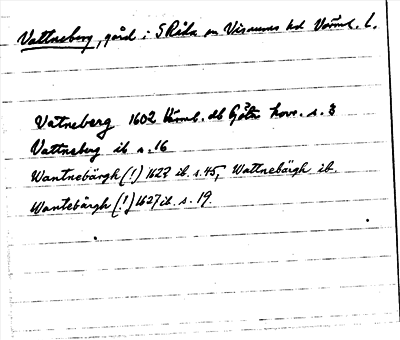 Vattneberg, gård i S Råda sn Visnums hd Värml. l.
Vatneberg 1602 Värml. db Göta hovr. s. 3
Vattneberg ib. s. 16
Wantnebärgh (!) 1627 ib. s. 45, Wattnebärgh ib.
Wantebärgh (!) 1627 ib. s. 19.